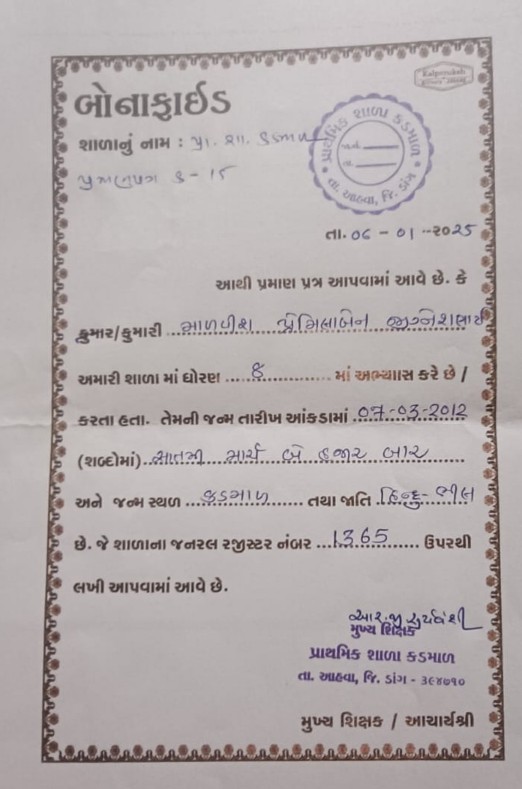 Kalpvruksh
બોનાફાઈડ
શાળાનું નામ : પ્રા. શા. કડમાળ
પ્રમાણપત્ર ક્ર - ૧૮
પ્રાથમિક શાળા કડમાળ
તા. આહવા, જિ. ડાંગ
તા. ૦૬ - ૦૧ -૨૦૨૫
આથી પ્રમાણ પત્ર આપવામાં આવે છે. કે
કુમાર/કુમારી માળવીશ પ્રેમિલાબેન જીગ્નેશભાઈ
અમારી શાળા માં ધોરણ ૪ માં અભ્યાસ કરે છે /
કરતા હતા. તેમની જન્મ તારીખ આંકડામાં 07-03-2012
(શબ્દોમાં) સાતમી માર્ચ બે હજાર બાર
અને જન્મ સ્થળ કડમાળ તથા જાતિ હિન્દુ-ભીલ
છે. જે શાળાના જનરલ રજીસ્ટર નંબર 1365 ઉપરથી
લખી આપવામાં આવે છે.
મુખ્ય શિક્ષક
પ્રાથમિક શાળા કડમાળ
તા. આહવા, જિ. ડાંગ - ૩૯૪૭૧૦
મુખ્ય શિક્ષક / આચાર્યશ્રી